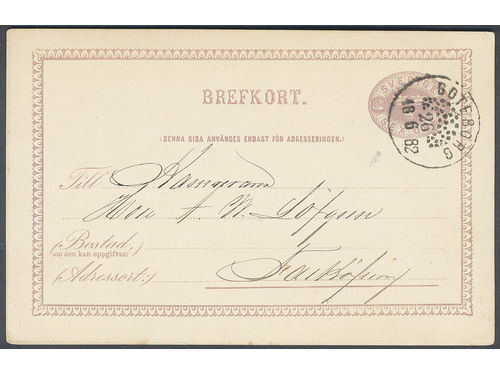 SVERIGE
BREFKORT.
GÖTEBORG
26
18 6 82
(DENNA SIDA ANVÄNDES ENDAST FÖR ADRESSERINGEN.)
Till
Herr A. W. Löfgren
(Bostad,
om den kan uppgifvas:)
(Adressort:) Falköping